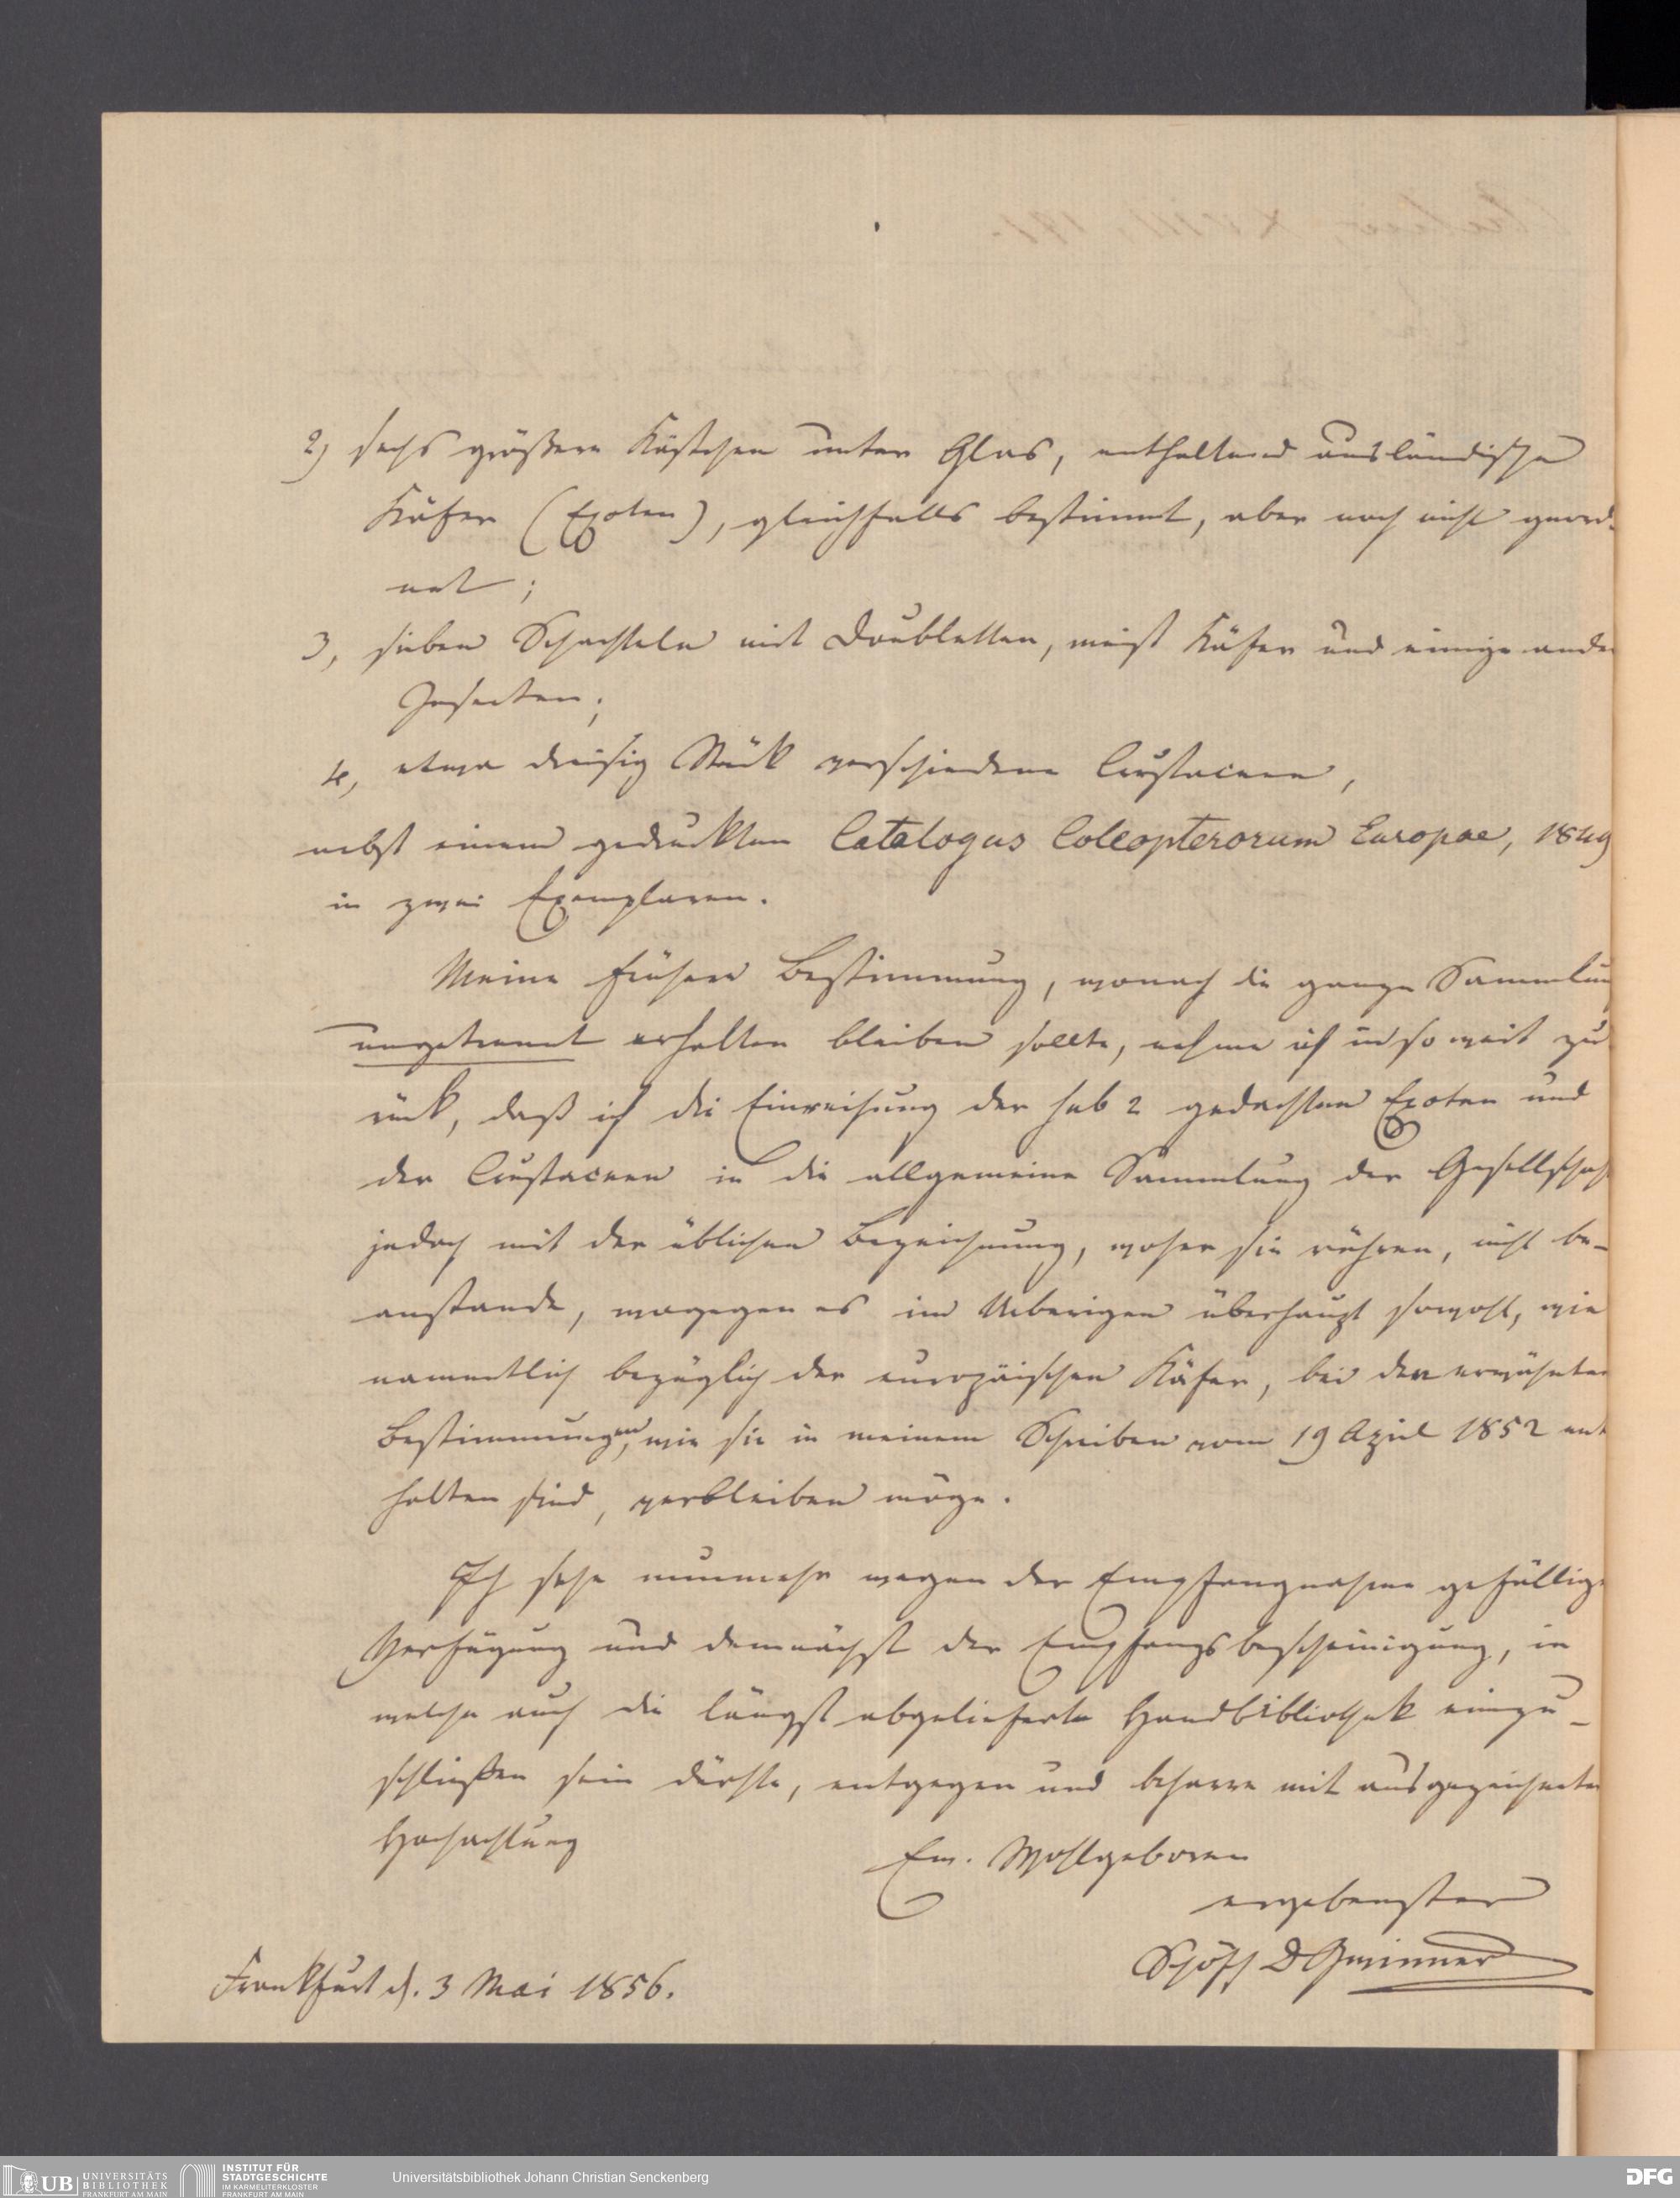 2) sechs größere Kästchen unter Glas, enthaltend ausländische
Käfer (Exoten), gleichfalls bestimmt, aber noch nicht geord-
net;
3, sieben Schachteln mit Doubletten, meist Käfer und einige ande
Insecten;
4, etwa dreisig Stück verschiedene Crustaceen,
nebst einem gedruckten Catalogus Coleopterorum Europae, 1849
in zwei Exemplaren.
Meine frühere Bestimmung, wonach die ganze Sammlun
ungetrennt erhalten bleiben sollte, nehme ich in so weit zu
rück, daß ich die Einreihung der sub 2 gedachten Exoten und
der Crustaceen in die allgemeine Sammlung der Gesellschaf
jedoch mit der üblichen Bezeichnung, woher sie rühren, nicht be-
anstande, wogegen es im Uebrigen überhaupt sowohl, wie
namentlich bezüglich der europäischen Käfer, bei den erwähnten
Bestimmungen, wie sie in meinem Schreiben vom 19 April 1852 ent
halten sind, verbleiben möge.
Ich sehe nunmehr wegen der Empfangnahme gefällige
Verfügung und demnächst der Empfangsbescheinigung, in
welche auch die längst abgelieferte Handbibliothek einzu-
schließen sein dürfte, entgegen und beharre mit ausgezeichneter
Hochachtung
Ew. Wohlgeboren
ergebenster
Schöff D Gwinner
Frankfurt d. 3 Mai 1856.
UB UNIVERSITÄTS
BIBLIOTHEK
FRANKFURT AM MAIN
INSTITUT FÜR
STADTGESCHICHTE
IM KARMELITERKLOSTER
FRANKFURT AM MAIN
Universitätsbibliothek Johann Christian Senckenberg
DFG